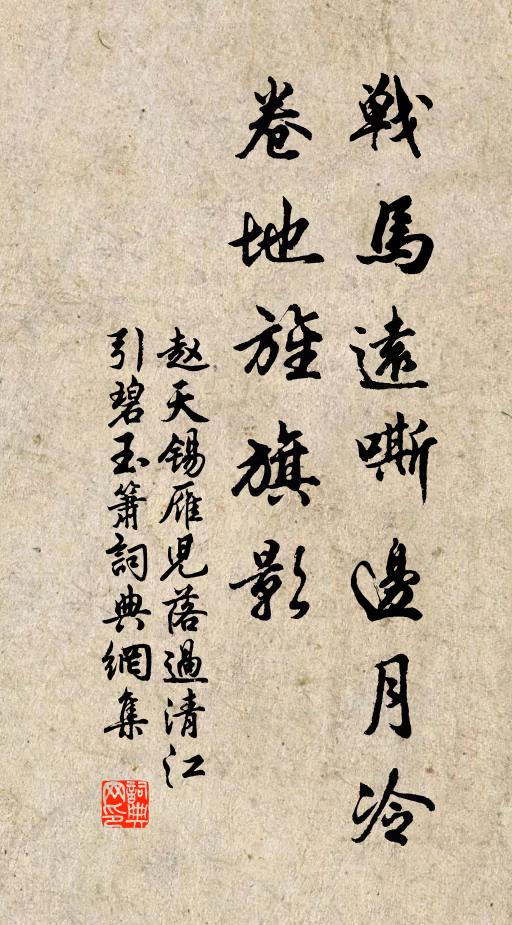 戦馬遠嘶邊月冷
卷地旌旗影
赵天锡雁児落過清江
引碧玉簫詞典網集
詞典
网印